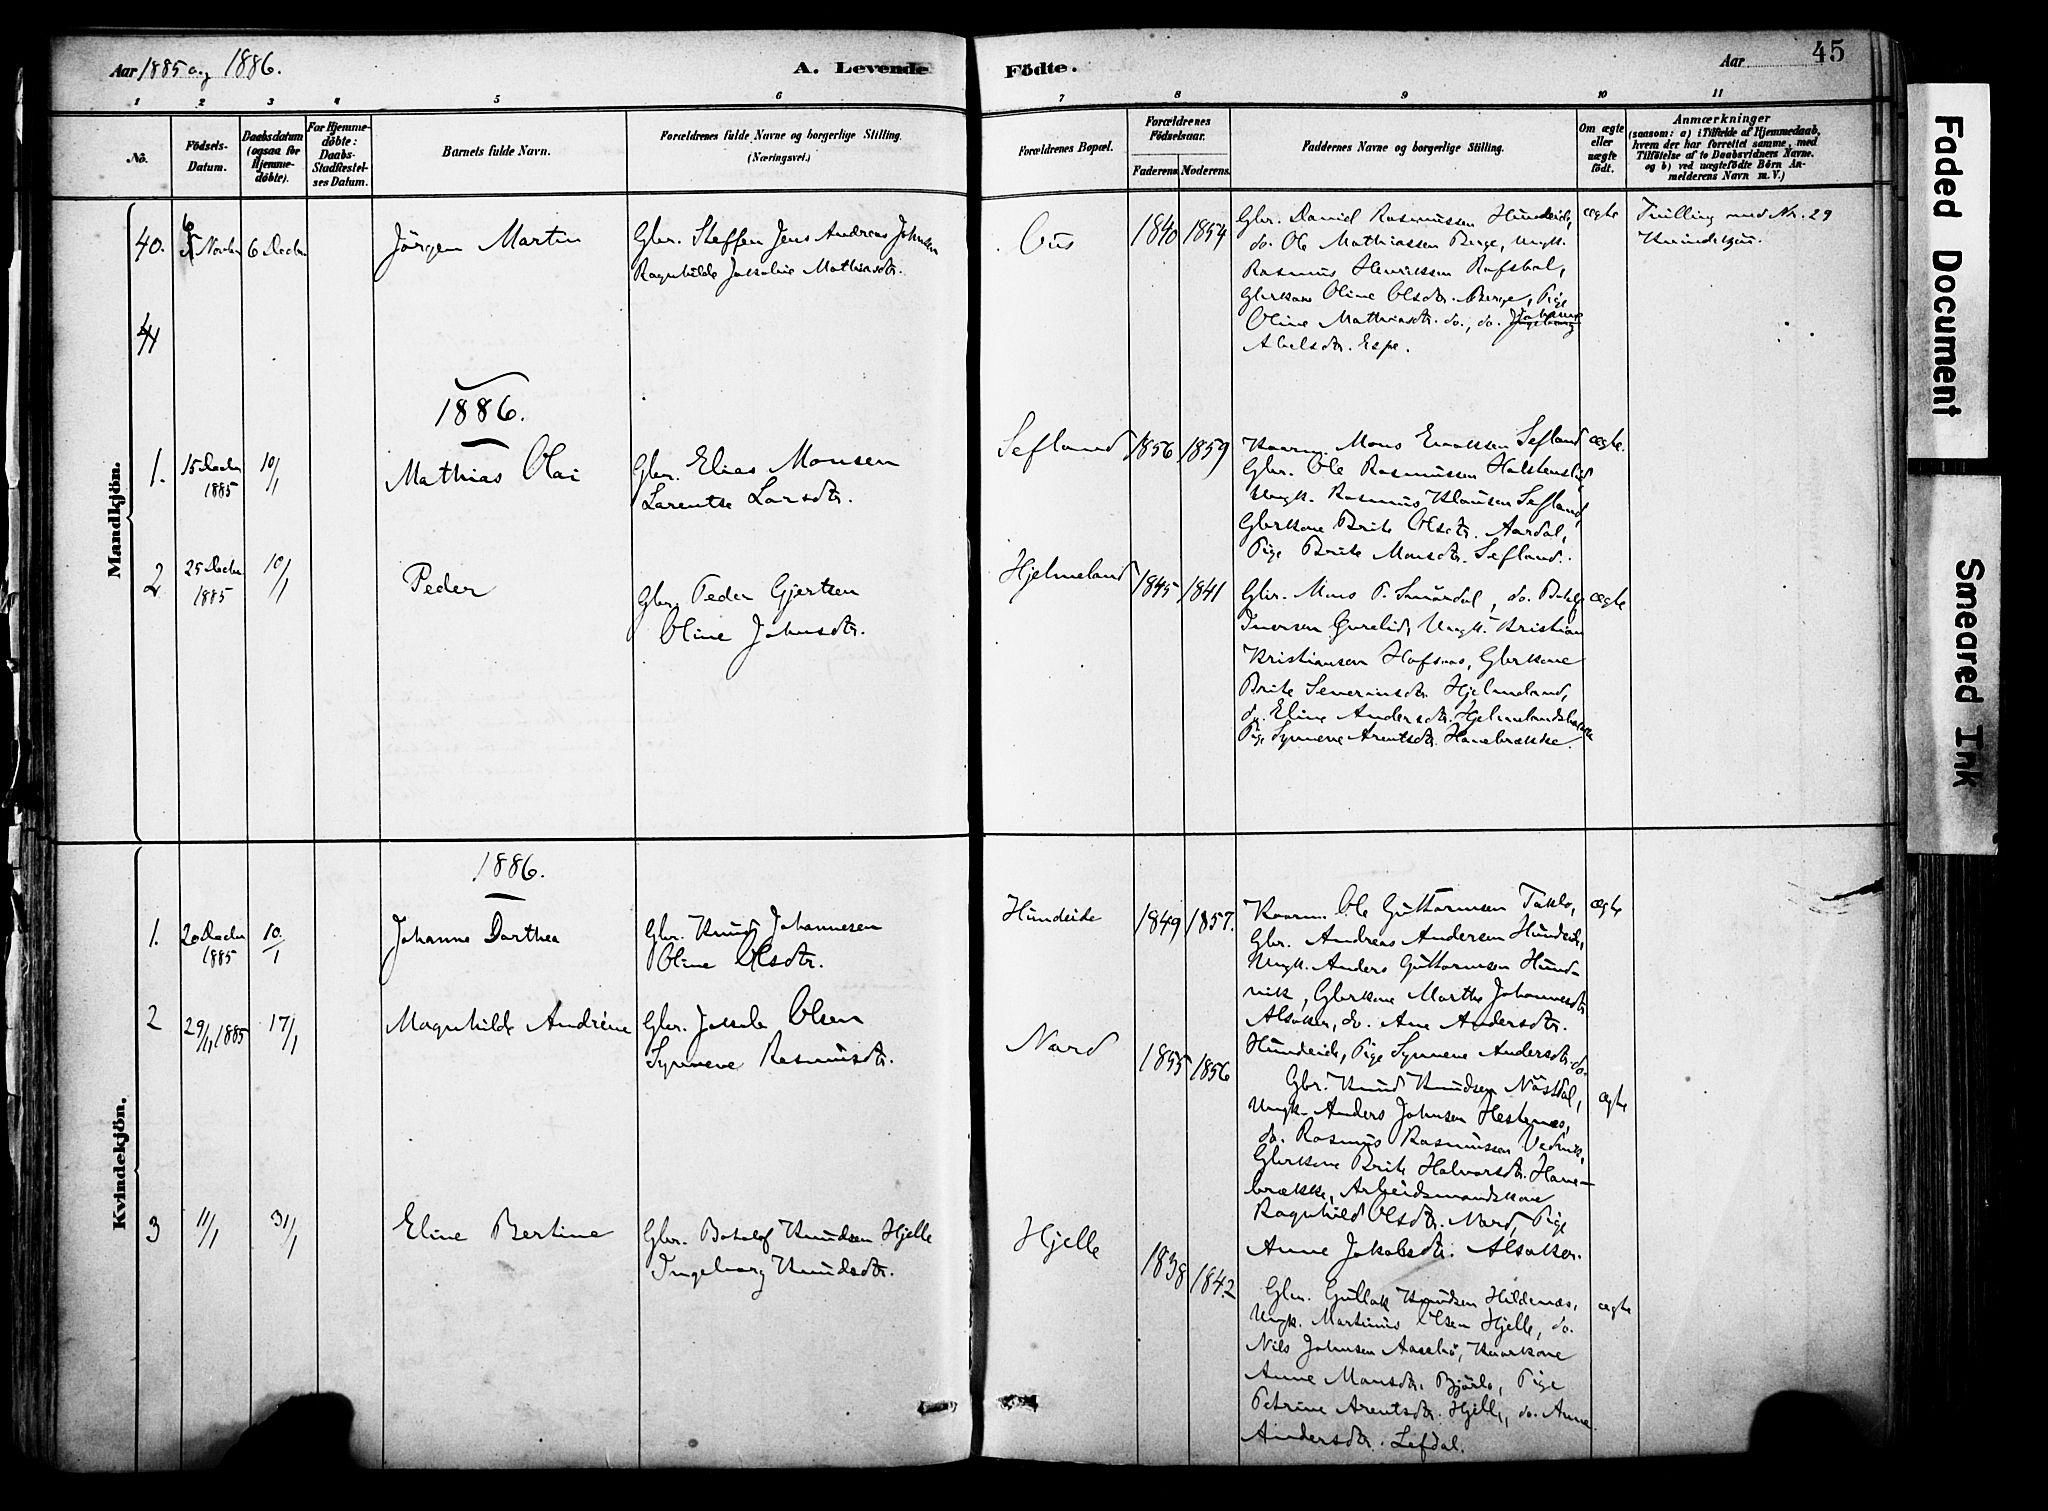 Aar 1885 og 1886.
A. Levende
Födte.
Aar
45
1
2
3
4
5
6
7
8
9
10
11
No.
Födsels-Datum.
Daabsdatum (ogsaa for Hjemme-döbte).
For Hjemme-döbte: Daabs-Stadfæstel-ses Datum.
Barnets fulde Navn.
Forældrenes fulde Navne og borgerlige Stilling.
(Næringsvei.)
Forældrenes Bopæl.
Forældrenes Födselsaar.
Faderens.
Moderens.
Faddernes Navne og borgerlige Stilling.
Om ægte eller uægte födt.
Anmærkninger
(saasom: a) i Tilfælde af Hjemmedaab,
hvem der har forrettet samme, med
Tilföielse af to Daabsvidners Navne,
og b) ved uægtefödte Börn An-
melderens Navn m. V.)
Mandkjön.
40.
Novbr
6 Decbr
Jörgen Martin
Gbr. Steffen Jens Andreas Johnsen
Ragnhilde Jakobine Mathiasdtr.
Ous
1840
1854
Gbr. David Rasmussen Hundeide,
do. Ole Mathiassen Berge, Ungk.
Rasmus Henriksen Rafsdal,
Gbrkone Oline Olsdtr. Berge, Pige
Oline Mathiasdtr. do., do.
Abelsdtr. Espe.
ægte
Tvilling med Nr. 29
Kvindekjön.
41
1886.
1.
15 Decbr
1885
10/1
Mathias Olai
Gbr. Elias Monsen
Larentse Larsdtr.
Sefland
1856
1859
Kaarm. Mons Enoksen Sefland
Gbr. Ole Rasmussen
Ungk. Rasmus Klausen Sefland,
Gbrkone Brite Olsdtr. Aardal,
Pige Brite Monsdtr. Sefland.
ægte
2
25 Decbr.
1885
10/1
Peder
Gbr. Peder Gjertsen
Oline Johnsdtr.
Hjelmeland
1845
1841
Gbr. Mons P. Smördal, do.
Iversen Ungk. Kristian
Kristiansen Hafsaas, Gbrkone
Brite Severinsdtr. Hjelmeland,
do. Eline Andersdtr. Hjelmelandsbakke
Pige Synneve Arentsdtr. Hanebrække.
ægte
Kvindekjön.
1886.
1.
20 Decbr
1885
10/1
Johanne Dorthea
Gbr. Knud Johannesen
Oline Olsdtr.
Hundeide
1849
1857.
Kaarm. Ole Guttormsen Taklo,
Gbr. Andreas Andersen Hundeide,
Ungk. Anders Guttormsen Hund-
vik, Gbrkone Marthe Johannesdtr
Alsaker, do. Ane Andersdtr.
Hundeide, Pige Synneve Andersdtr. do.
ægte
2
29/11 1885
17/1
Magnhilde Andréne
Gbr. Jakob Olsen
Synneve Rasmusdtr.
Nard
1855
1856
Gbr. Knud Knudsen Nöstdal,
Ungk. Anders Johnsen Hestenes,
do. Rasmus Rasmussen Vedvik,
Gbrkone Brite Halvorsdtr. Hane-
brække, Arbeidsmandskone
Ragnhild Olsdtr. Nard, Pige
Anne Jakobsdtr. Alsaker.
ægte
3
11/1
31/1
Eline Bertine
Gbr. Botolof Knudsen Hjelle
Ingeborg Knudsdtr.
Hjelle
1838
1842
Gbr. Gullak Knudsen Hildenæs,
Ungk. Martinus Olsen Hjelle, do.
Nils Johnsen Aasebö, Kaarkone
Anne Monsdtr. Bjørlo, Pige
Petrine Arentsdtr. Hjelle, do. Anne
Andersdtr. Lefdal.
ægte
Faded Document
Smeared Ink